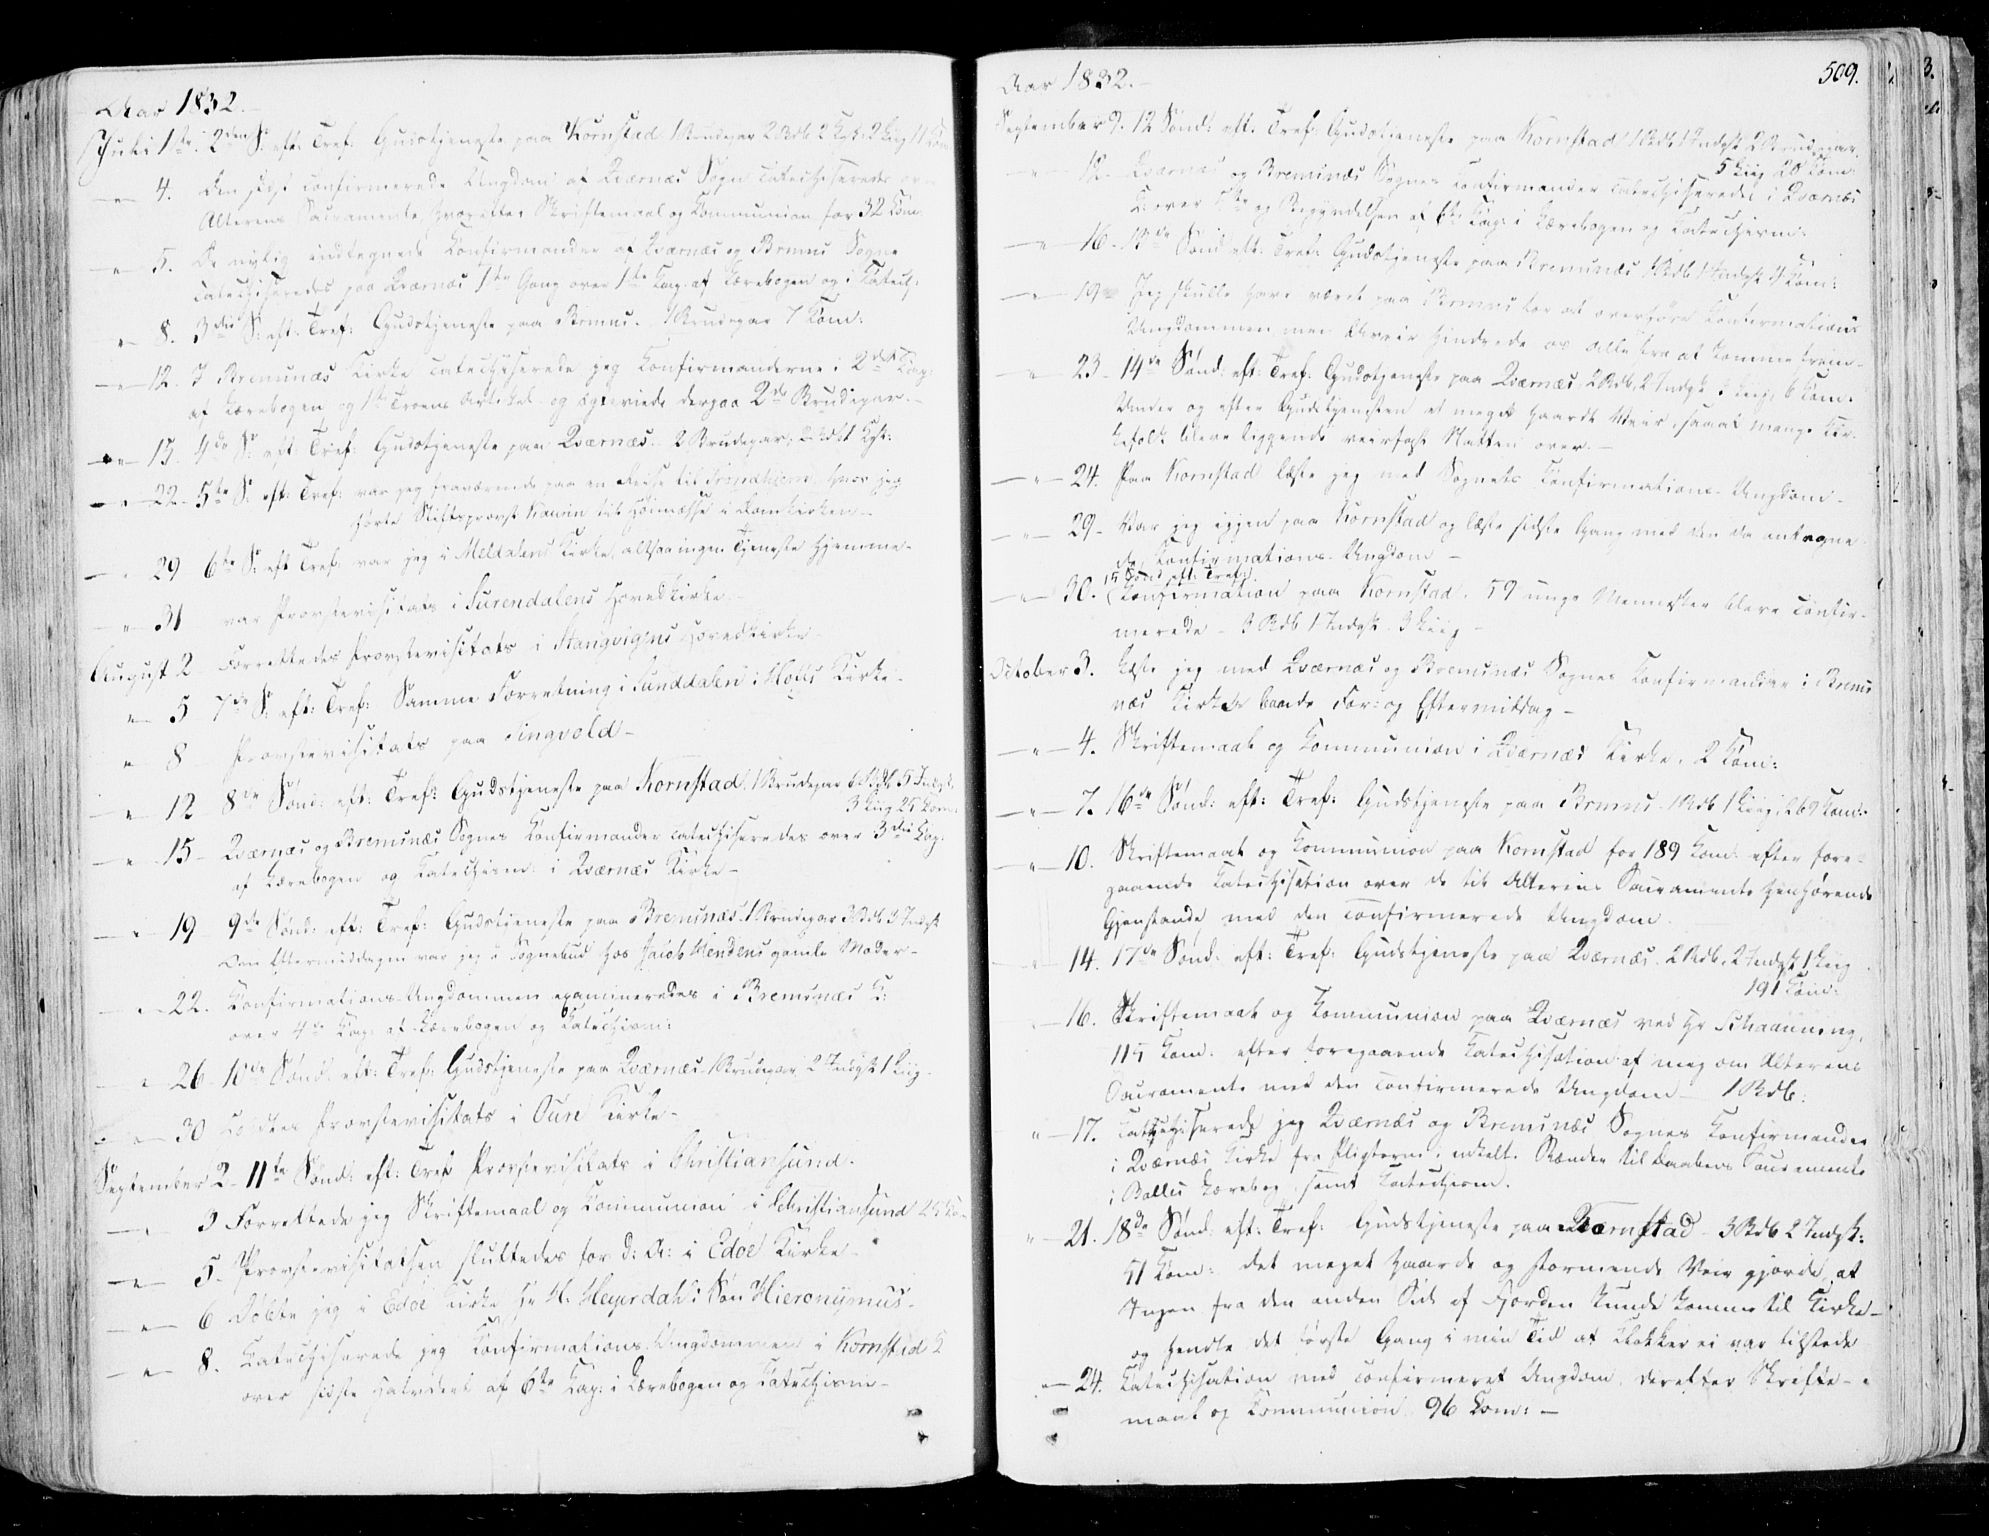 Aar 1832.
Juli 1ste. 2den S. eft: Tref: Gudstjeneste paa Kornstad 1 Brudepar 2 Rdb 2 2 Kiig 11 Kom
—"— 4. Den sidst confirmerede Ungdom af Qværnæs Sogn Catechiserede
Alterens Sacramente, hvorefter Skriftemaal og Communion for 32 Kom.
—"— 5. De nylig indtegnede Confirmander af Qværnæs og Brmns Sogne
Catechiseredes paa Qværnæs 1ste Gang over 1ste Cap. af Lærebogen og i Catech:
—"— 8. 3die S: eft: Tref: Gudstjeneste paa Brmns. 1 Brudepar 7 Kom:
—"— 12. I Bremsnæs Kirke catechiserede jeg Confirmanderne i 2det Cap:
af Lærebogen og 1ste Troens Artikel og egteviede derpaa 2de Brudepar.—
—"— 15. 4de S: eft: Tref: Gudstjeneste paa Qværnæs. 2 Brudepar,
—"— 22. 5te S. eft: Tref: var jeg fraværende paa en Reise til Trondhjem, hvor jeg
hørte Stiftsprovst til Høimesse i Domkirken.—
—"— 29 6te S: eft Tref: var jeg i Meldalens Kirke, altsaa ingen Tjeneste hjemme.
—"— 31 var Provstevisitats i Surendalens Hovedkirke.
August 2 Forrettedes Provstevisitats i Stangvigens Hovedkirke.
—"— 5 7de S: eft: Tref: Samme Forretning i Sunddalen i Kirke.
" 8 Provstevisitats paa Tingvold—
—"— 12 8de Sønd: eft: Tref: Gudstjeneste paa Kornstad. 1 Brudepar 6 Rdb 5 Indgk.
3 Kiig 25 Kom.
—"— 15— Qværnæs og Bremsnæs Sognes Confirmander catechiseredes over 3die Cap:
af Lærebogen og Catechism: i Qværnæs Kirke—
—"— 19 9de Sønd: eft: Tref: Gudstjeneste paa Bremsnæs. 1 Brudepar 3 Rdb 3 Indgk
Om Eftermiddagen var jeg i Sognebud hos Jacob Hendens gamle Moder—
—"— 22. Confirmations-Ungdommen examineredes i Bremsnæs K:
over 4de Cap: af Lærebogen og Catechism:
" 26 10de Sønd: eft: Tref: Gudstjeneste paa Qværnæs. 1 Brudepar 2 Indgk 1 Kiig.
—"— 30 Holdtes Provstevisitats i Oure Kirke—
September 2— 11te Sønd: eft: Tref Provstevisitats i Christiansund.
—"— 3 Forrettede jeg Skriftemaal og Communion i Christiansund
—"— 5. Provstevisitatsen sluttedes for d: A: i Edøe Kirke
—"— 6 Døbte jeg i Edøe Kirke Hr H. Heyerdahls Søn Hieronymus.
—"— 8. Catechiserede jeg Confirmations-Ungdommen i Kornstad K
over sidste Halvdeel af 6te Cap: i Lærebogen og Catechism—
Aar 1832.— 509.
September 9. 12 Sønd: eft. Tref: Gudstjeneste paa Kornstad 1 Rdb 1 Indgk 2 Brudepar.
5 Kiig 20 Kom:
—"— 12. Qværnæs og Bremsnæs Sognes Confirmander catechiseredes i Qværnæs
K: over 5te og Begyndelsen af 6te Cap: i Lærebogen og Catechism:
—"— 16. 13de Sønd eft: Tref: Gudstjeneste paa Bremsnæs 1 Rdb 1 Indgk 4 Kom:
—"— 19 Jeg skulle have været paa Brmns for at overhøre Confirmations
Ungdommen men Uveir hindrede os alle fra at komme frem.
—"— 23— 14de Sønd: eft: Tref: Gudstjeneste paa Qværnæs, 2 Rdb, 2 Indgk 3 Kiig, 6 Kom.
Under og efter Gudstjenesten et meget haardt Veir, saaat mange Kir-
kefolk bleve liggende veirfast Natten over.—
—"— 24. Paa Kornstad læste jeg med Sognets Confirmations-Ungdom.
—"— 29— Var jeg igjen paa Kornstad og læste sidste Gang med den da antagne
de Confirmations-Ungdom—
15 Sønd eft: Tref:
—"— 30. (Confirmation paa Kornstad. 59 unge Mennesker bleve confir-
merede— 3 Rdb 1 Indgk. 3 Kiig—
October 3. Læste jeg med Qværnæs og Bremsnæs Sognes Confirmander i Brems
næs Kirke baade For- og Eftermiddag—
—"— 4. Skriftemaal og Communion i Qværnæs Kirke, 2 Kom:
—"— 7. 16de Sønd: eft: Tref: Gudstjeneste paa Brmns. 1 Rdb 1 Kiig, 269 Kom:
—"— 10. Skriftemaal og Communion paa Kornstad for 189 Kom: efter fore-
gaaende Catechisation over de til Alterens Sacramente henhørende
Gjenstande, med den confirmerede Ungdom
" 14. 17de Sønd: eft: Tref: Gudstjeneste paa Qværnæs. 2 Rdb, 2 Indgk 1 Kiig
191 Kom:
—16. Skriftemaal og Communion paa Qværnæs ved Hr Schaanning,
115 Kom: efter foregaaende Catechisation af meg om Alterens
Sacramente med den confirmerede Ungdom— 1 Rdb:
"—17. Catechiserede jeg Qværnæs og Bremsnæs Sognes Confirmander
i Qværnæs Kirke fra Pligterne, til Daabens Sacramente
i Balles Lærebog, samt Catechism.
"—21. 18de Sønd: eft. Tref: Gudstjeneste paa Kornstad— 3 Rdb 2 Indgk:
51 Kom: det meget haarde og stormende Veir gjorde, at
Ingen fra den anden Side af Fjorden kunde komme til Kirke—
og hendte det første Gang i min Tid at Klokker ei var tilstede
"—24. Catechisation med confirmeret Ungdom, derefter Skrifte-
maal og Communion 96 Kom:—